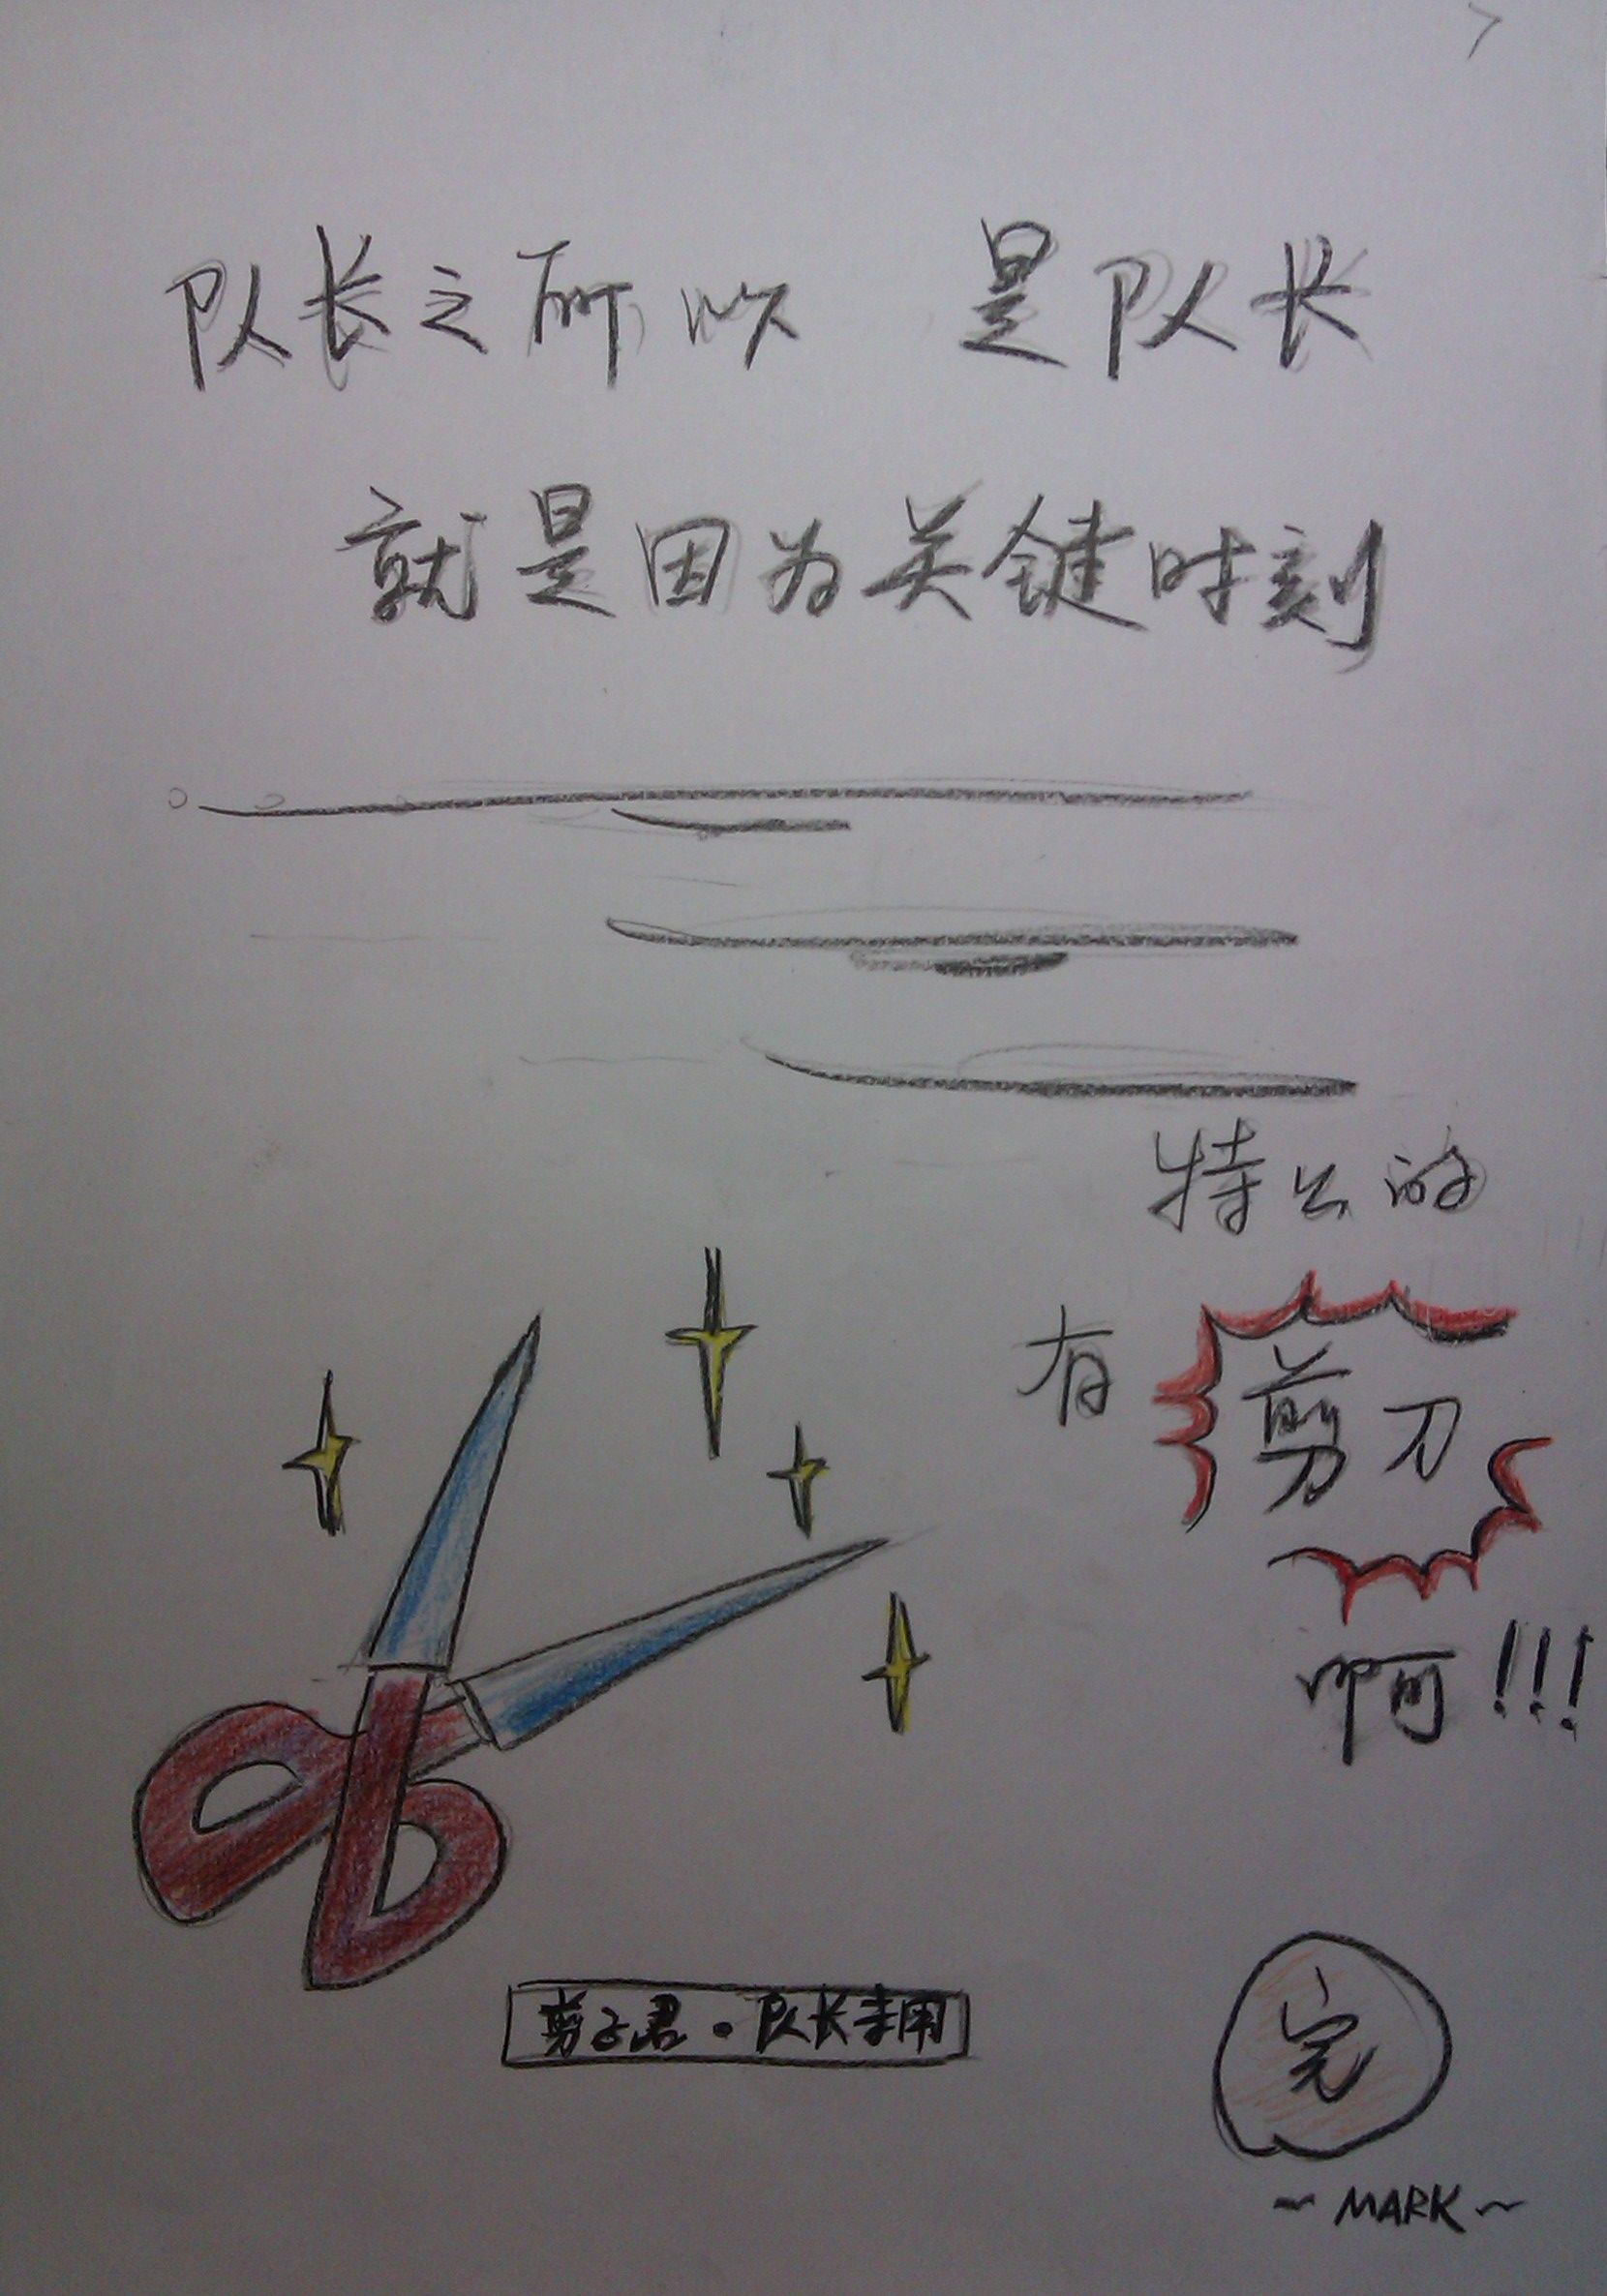 队长之所以 是队长
就是因为关键时刻
特么的
有剪刀
啊!!!
剪子君·队长专用
完
~MARK~